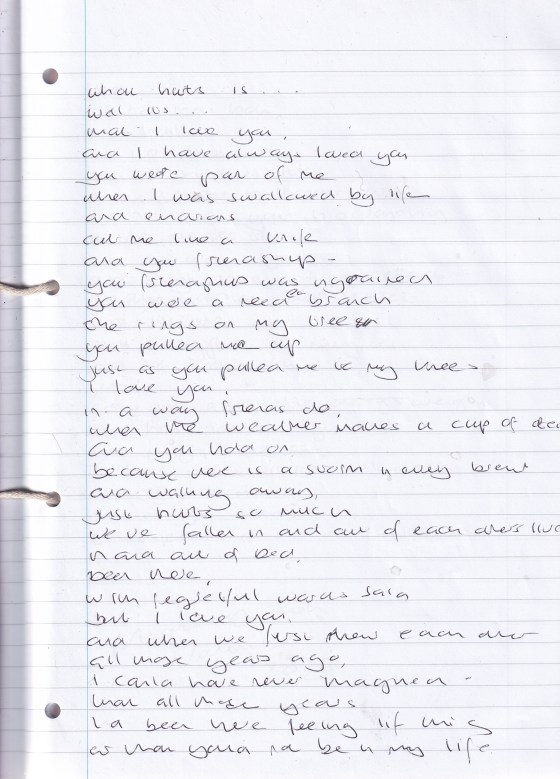 what hurts is . . .
wat its . . .
that I love you,
and I have always loved you
you were part of me
when I was swallowed by life
and emotions
cut me like a knife
and your friendship -
your friendship was ingrained
you were a needed branch
the rings on my tree
you pulled me up
just as you pulled me to my knees
I love you,
in a way friends do,
when the weather makes a cup of
and you hold on
because there is a storm in every brew
and walking away,
just hurts so much
we've fallen in and out of each others live
in and out of bed,
been here,
with regretful words said
but I love you.
and when we first knew each other
all those years ago,
I coulda have never imagined -
that all those years
I'd been here feeling lif this
or that you'd be in my life